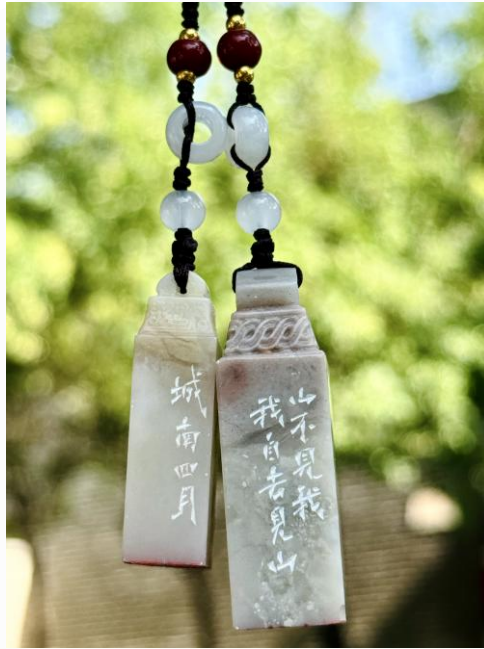 城南四月
山不見我
我自去見山